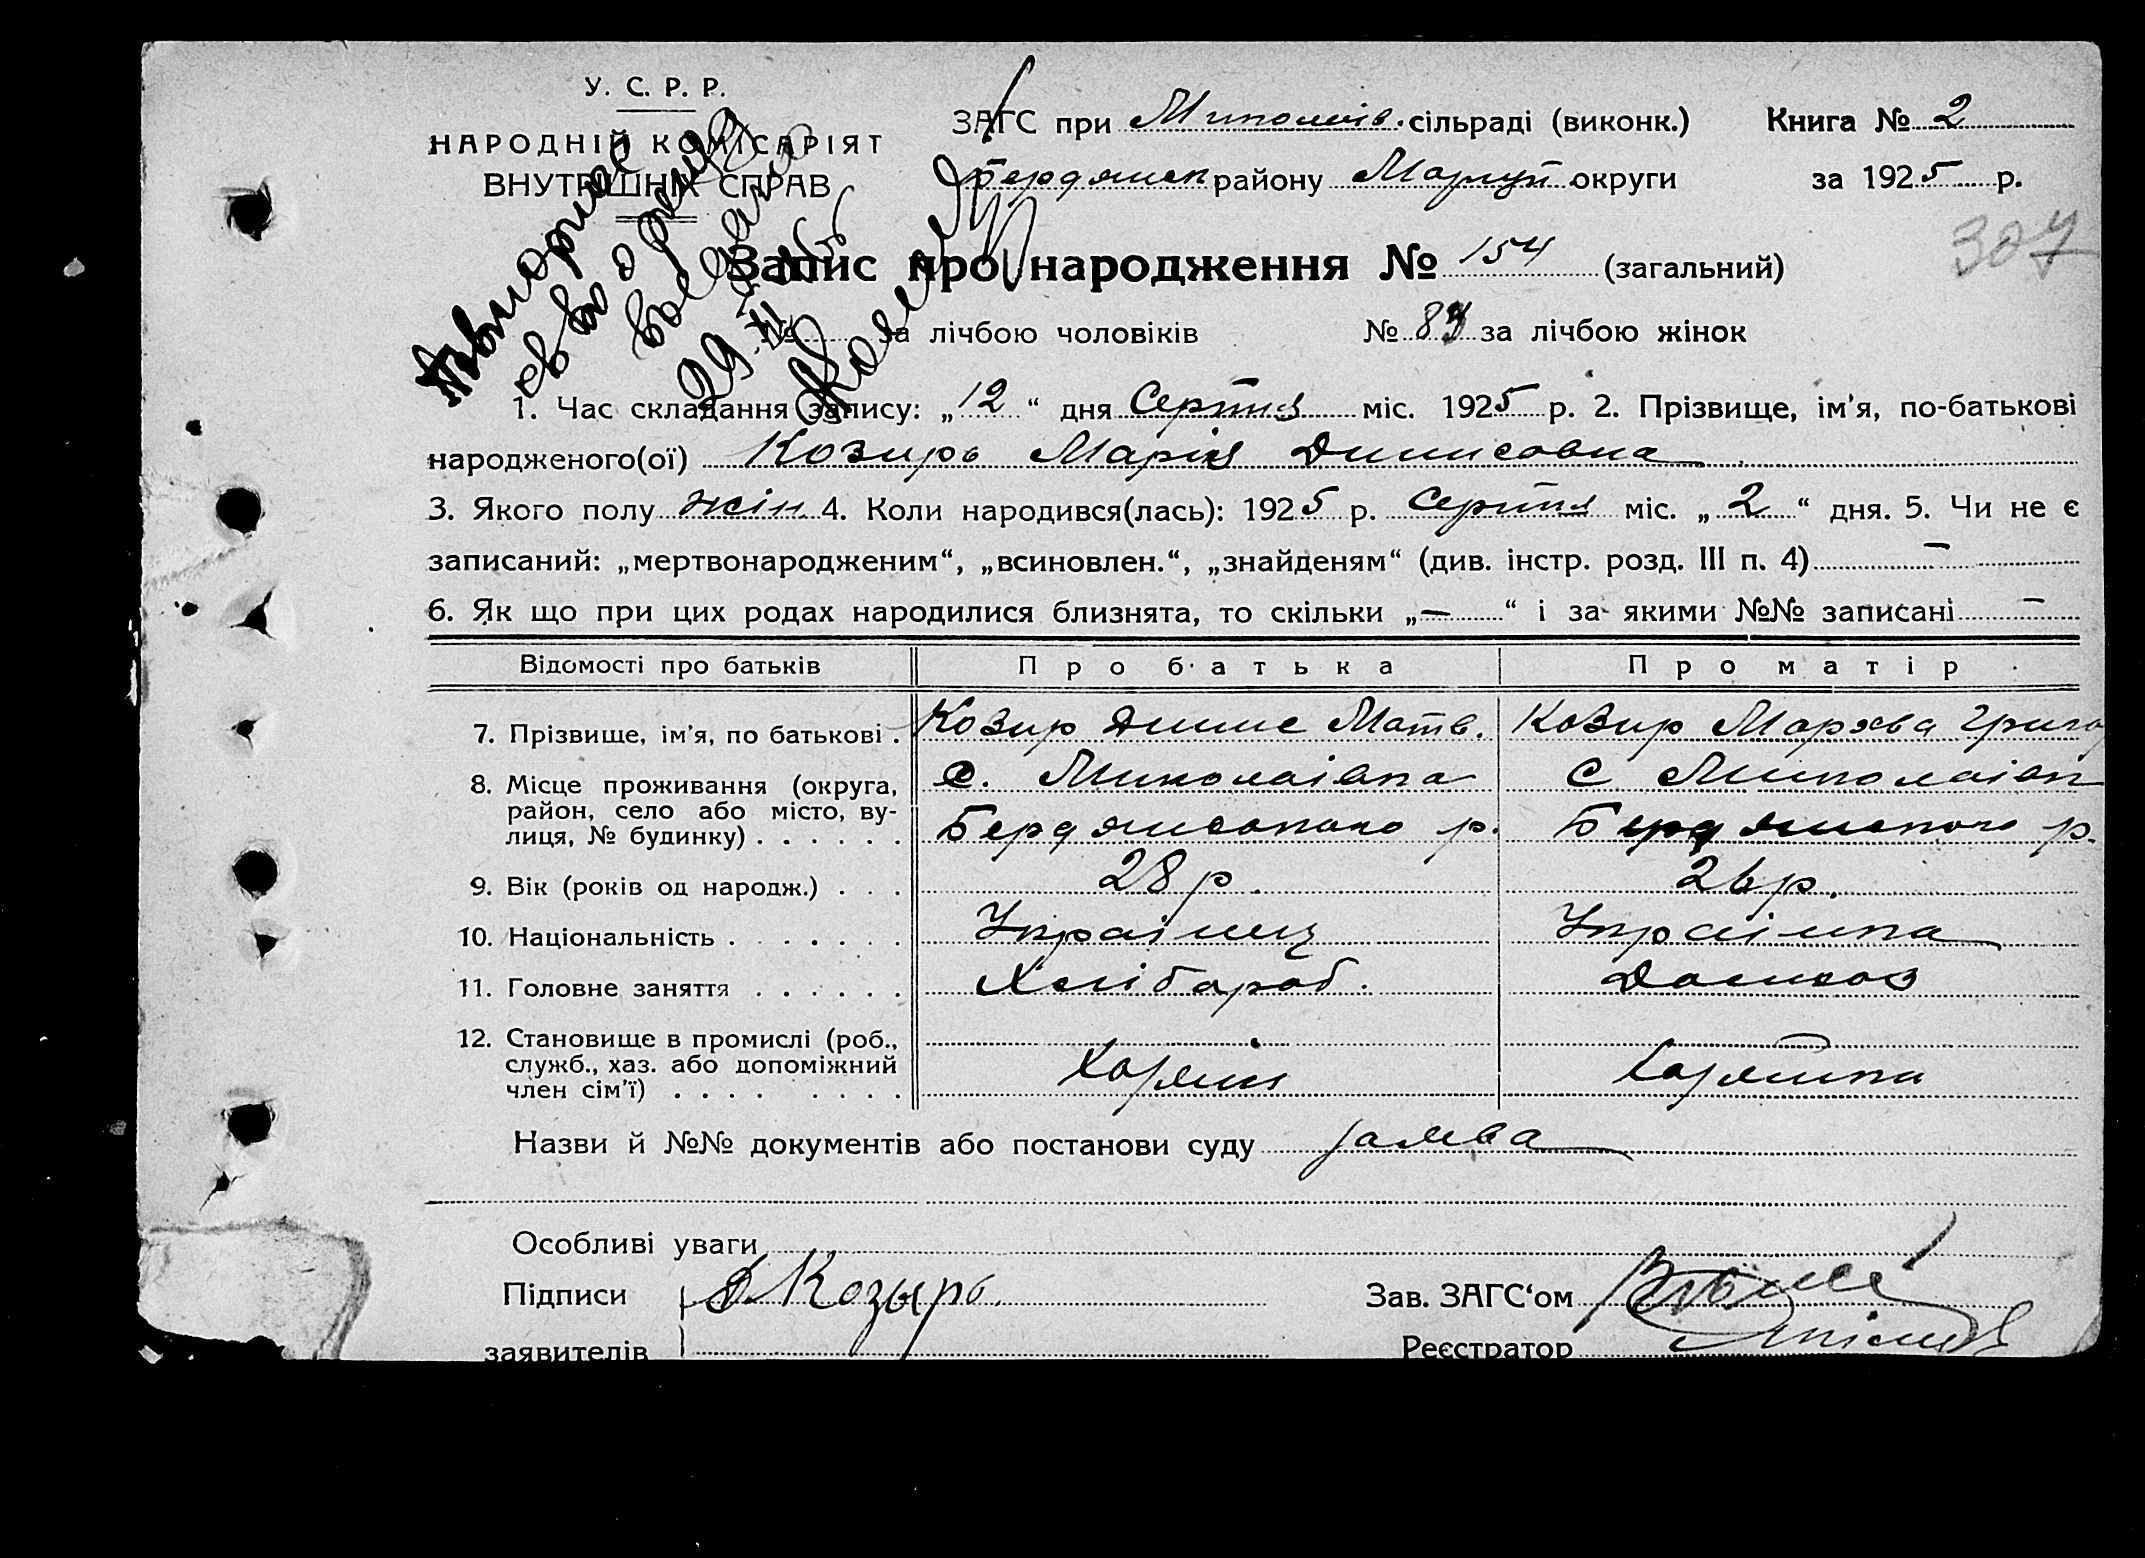 У. С. Р. Р.
НАРОДНІЙ КОМІСАРІЯТ
ВНУТРІШНІХ СПРАВ
ЗАГС при Миколаїв. сільраді (виконк.) Книга № 2
Бердянськ району Маріуп округи за 1925 р.
307
Запис про народження № 154 (загальний)
№ за лічбою чоловіків № 83 за лічбою жінок
Повторное
св во о рожд
выдано
29
1. Час складання запису: „12“ дня Серпня міс. 1925 р. 2. Прізвище, ім’я, по-батькові
народженого(ої) Козирь Марія Динисовна
3. Якого полу жін. 4. Коли народився(лась): 1925 р. Серпня міс. „2“ дня. 5. Чи не є
записаний: „мертвонародженим“, „всиновлен.“, „знайденям“ (див. інстр. розд. III п. 4) —
6. Як що при цих родах народилися близнята, то скільки „—“ і за якими №№ записані —
Відомості про батьків Про батька Про матір
7. Прізвище, ім’я, по батькові . Козир Динис Матв. Козир Мархва Григор
8. Місце проживання (округа, с. Миколаівка с Миколаівк
район, село або місто, ву-
лиця, № будинку) . . . . . . Бердянсокого р. Бердянского р.
9. Вік (років од народж.) . . . 28 р. 26 р.
10. Національність . . . . . . . Украінец Украінка
11. Головне заняття . . . . . . Хлібороб. Домхоз
12. Становище в промислі (роб.,
служб., хаз. або допоміжний Хозяин Хозяйка
член сім’ї) . . . . . . . .
Назви й №№ документів або постанови суду заява
Особливі уваги
Підписи Д Козырь. Зав. ЗАГС‘ом
заявителів Реєстратор